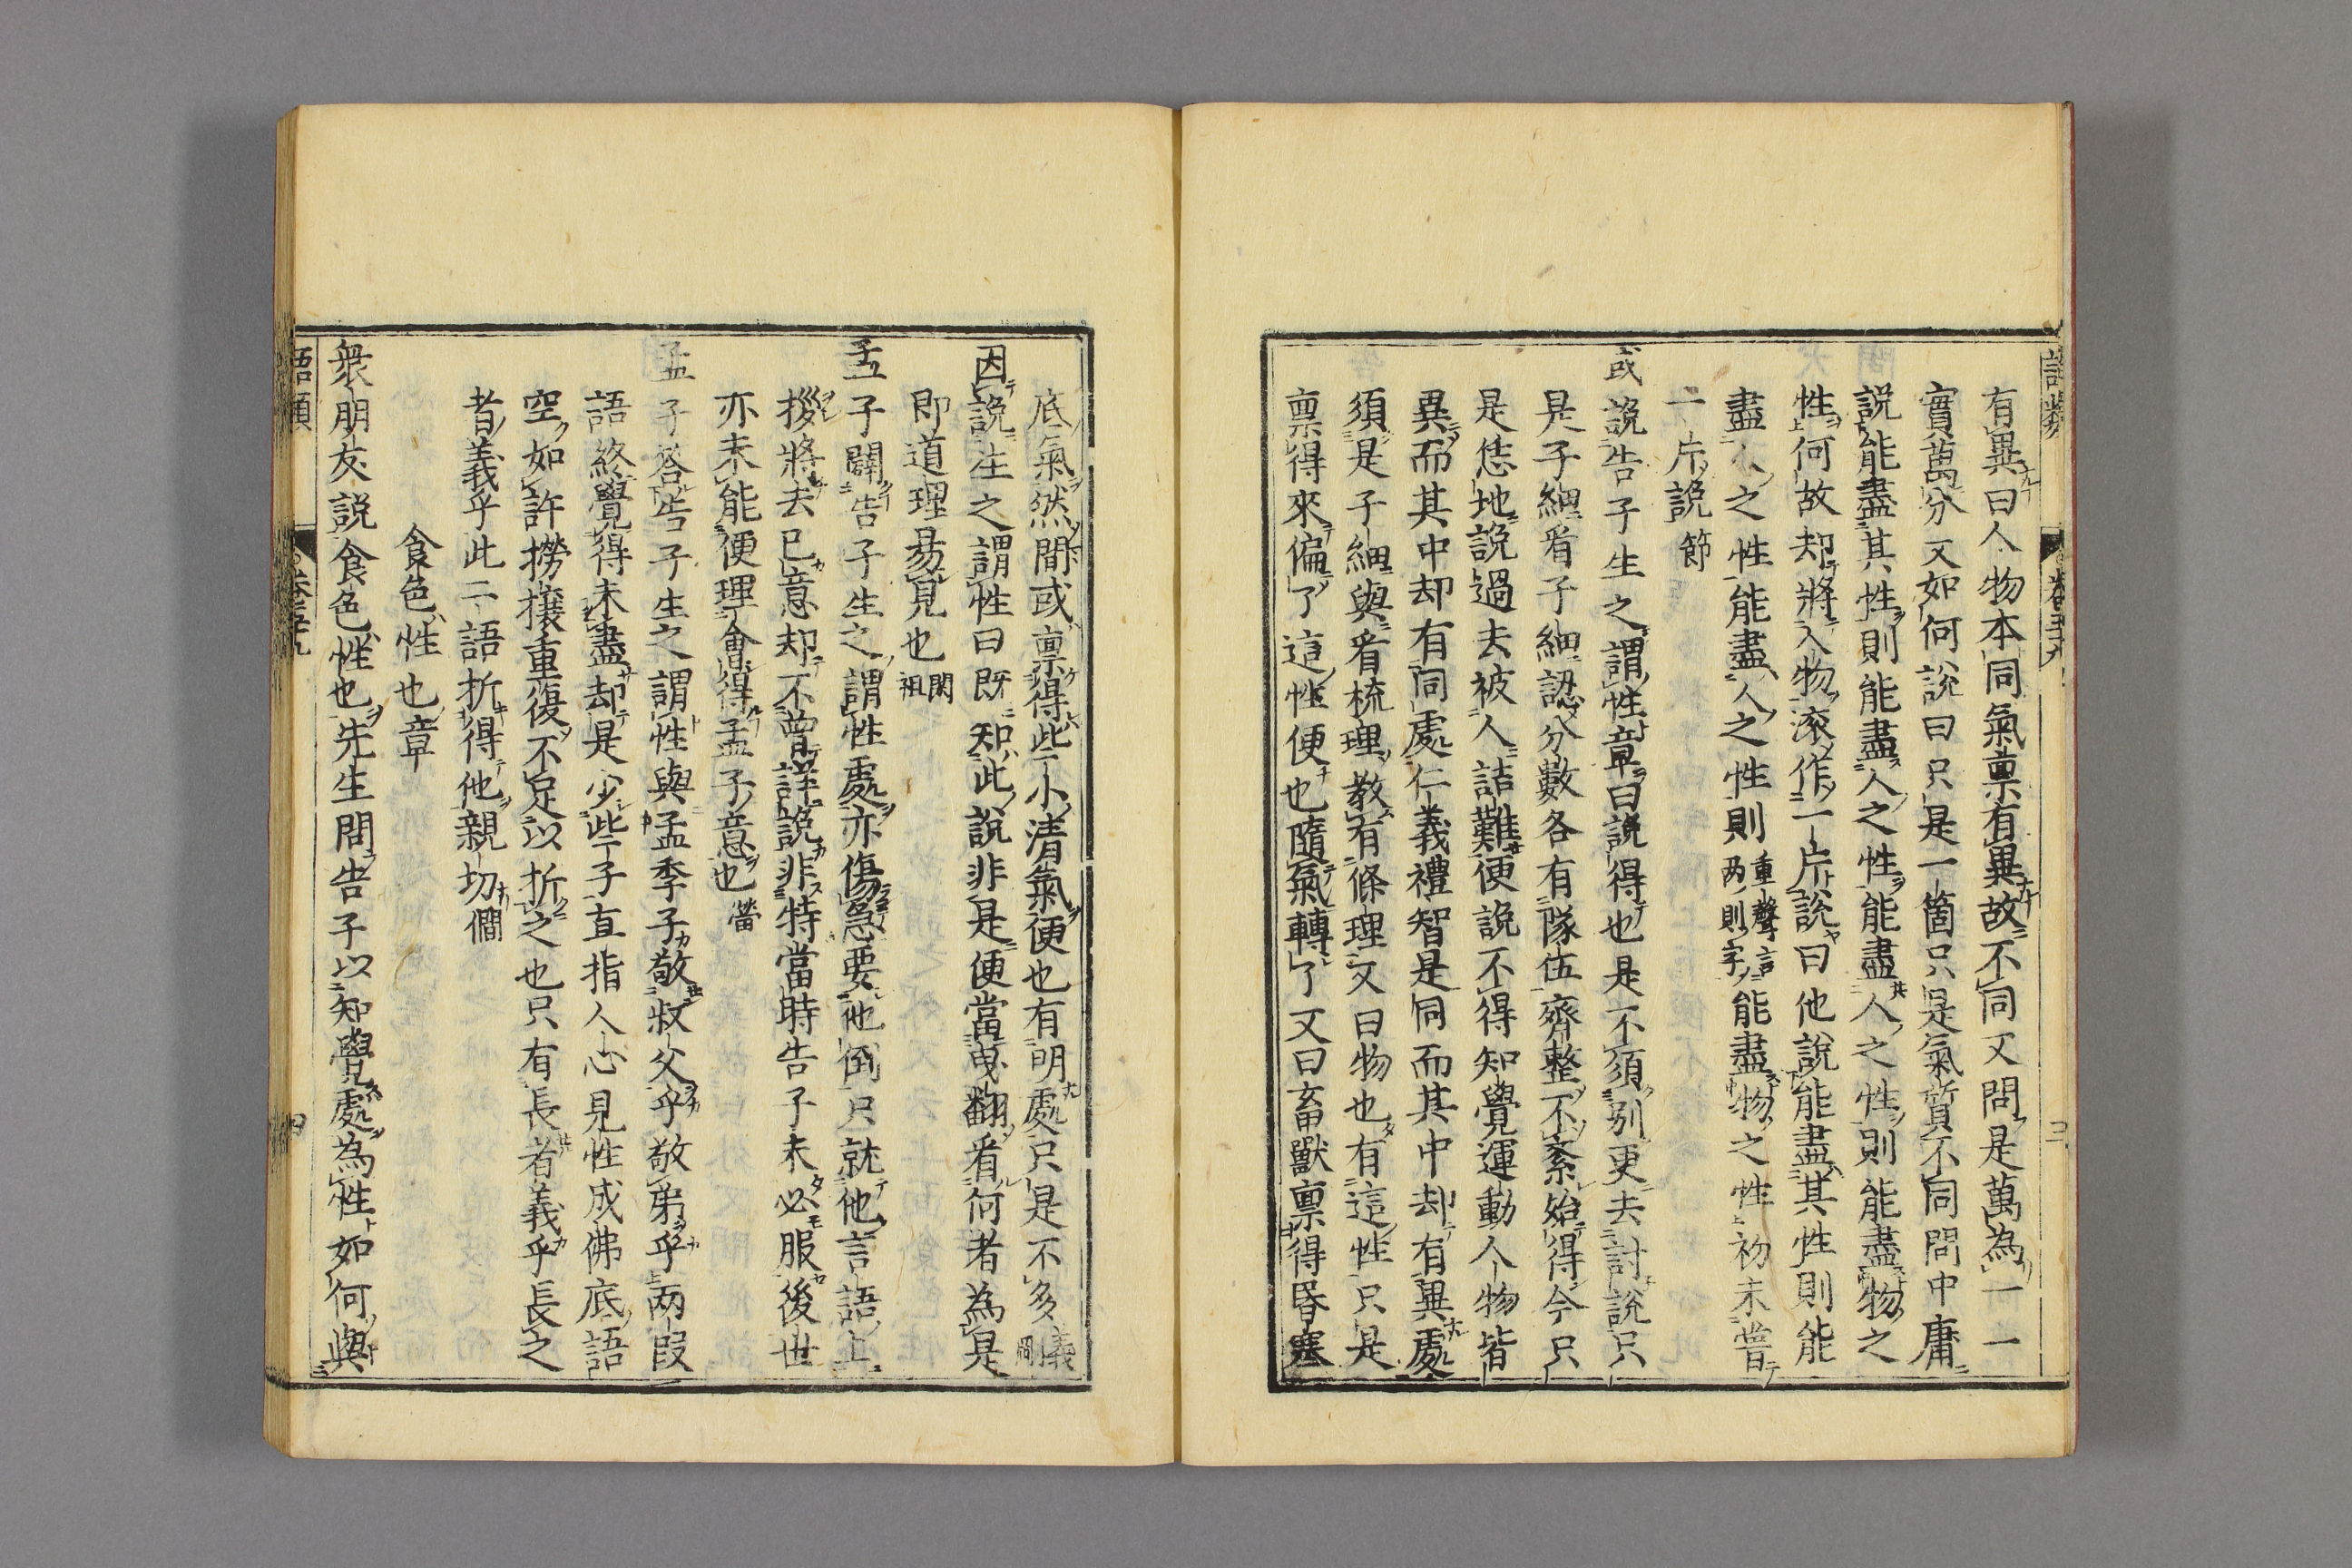 語類 卷五十九 三
有異曰人物本同氣稟有異故不同又問是萬為一一
實萬分又如何說曰只是一箇只是氣質不同問中庸
說能盡其性則能盡人之性能盡人之性則能盡物之
性何故却將人物滚作一片說曰他說能盡其性則能
盡人之性能盡人之性則重聲言两則字能盡物之性初未嘗
一片說節
或說告子生之謂性章曰說得也是不須別更去討說只
是子細看子細認分數各有隊伍齊整不紊始得今只
是恁地說過去被人詰難便說不得知覺運動人物皆
異而其中却有同處仁義禮智是同而其中却有異處
須是子細與看梳理教有條理又曰物也有這性只是
稟得來偏了這性便也隨氣轉了又曰畜獸稟得昏塞
底氣然間或稟得些小清氣便也有明處只是不多義剛
因說生之謂性曰既知此說非是便當曳翻看何者為是
即道理易見也閎祖
孟子闢告子生之謂性處亦傷急要他倒只就他言語上
拶將去已意却不曾詳說非特當時告子未必服後世
亦未能便理會得孟子意也㽦
孟子答告子生之謂性與孟季子敬叔父乎敬弟乎两段
語終覺得未盡却是少些子直指人心見性成佛底語
空如許撈攘重復不足以折之也只有長者義乎長之
者義乎此二語折得他親切僩
食色性也章
衆朋友說食色性也先生問告子以知覺處為性如何與
語類 卷五十九 四